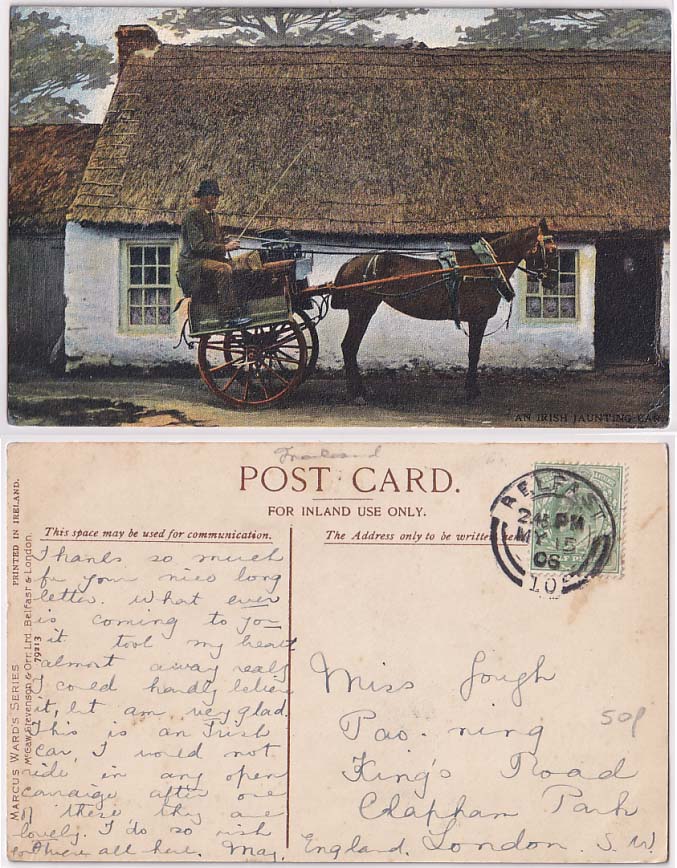 AN IRISH JAUNTING CAR
POST CARD.
FOR INLAND USE ONLY.
This space may be used for communication.
The Address only to be written here.
BELFAST
2.45 PM
MY 15
06
MARCUS WARD'S SERIES
PRINTED IN IRELAND.
McCaw, Stevenson & Orr, Ltd. Belfast & London.
79213
Thanks so much
for your nice long
letter. What ever
is coming to you
it took my heart
almost away really
I could hardly believe
it, but am very glad.
This is an Irish
Car, I would not
ride in any open
carraige after one
of these they are
lovely. I do so wish
were all here. May.
Miss Gough
ning
King's Road
Clapham Park
England. London. S.W.
50p